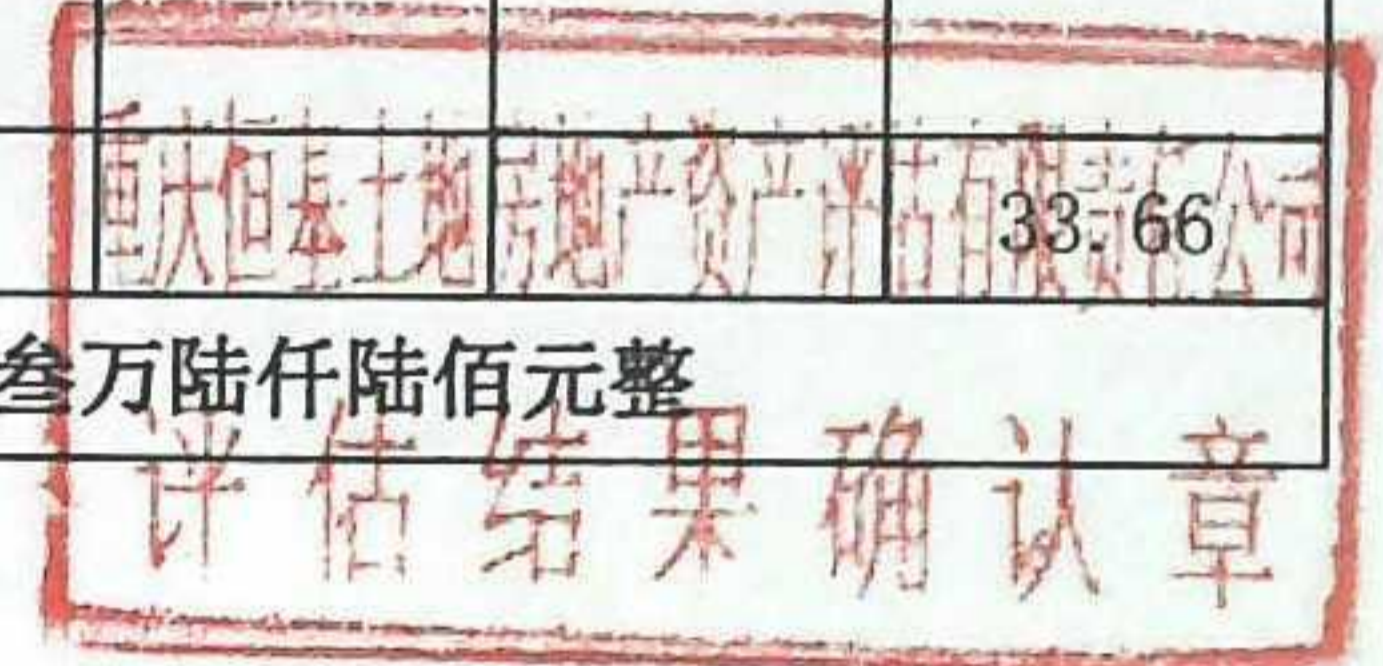 重大恒基土地房地产资产评估有限责任公司
33.66
叁万陆仟陆佰元整
评估结果确认章